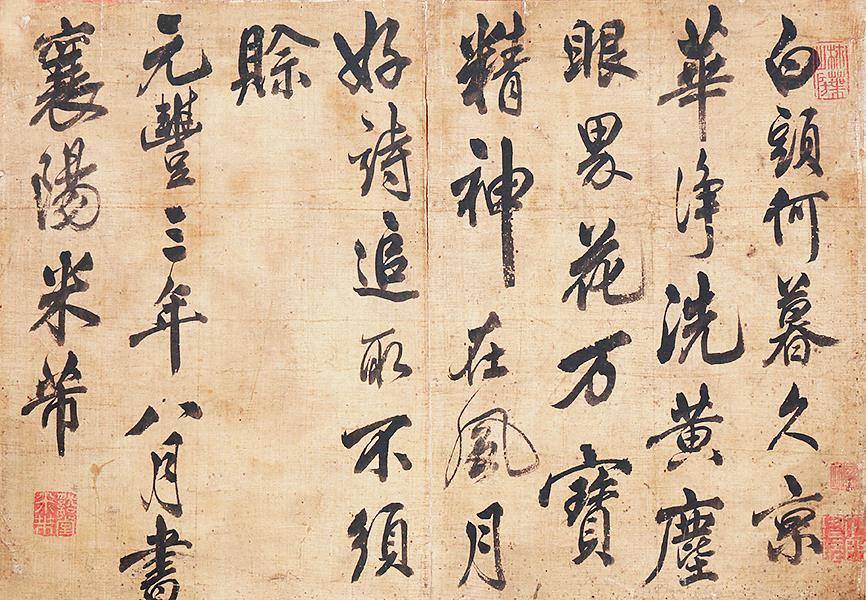 白頭何暮久京
華淨洗黃塵
眼界花万寶
精神在風月
好詩追取不須
賒
元豐三年八月書
襄陽米芾